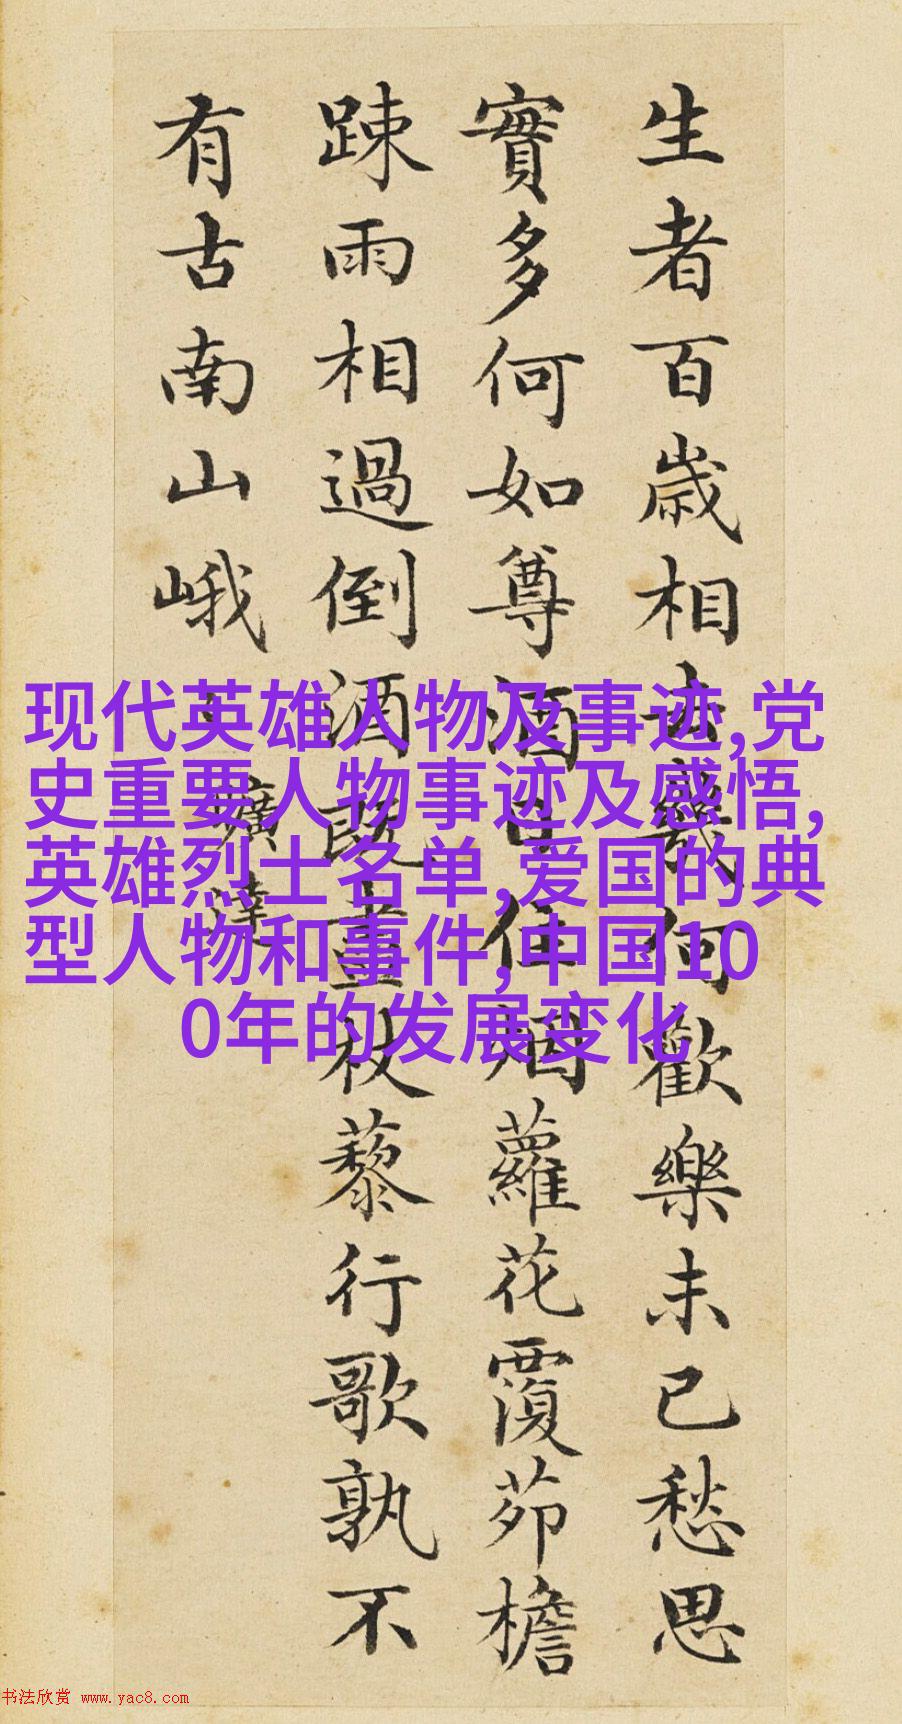 生者百歳相去幾何歡樂未已愁思
實多何如尊酒日往烟蘿花覆茆檐
踈雨相過倒酒既盡杖藜行歌孰不
有古南山峨〻 曠達
现代英雄人物及事迹,党
史重要人物事迹及感悟,
英雄烈士名单,爱国的典
型人物和事件,中国10
0年的发展变化
书法欣赏 www.yac8.com